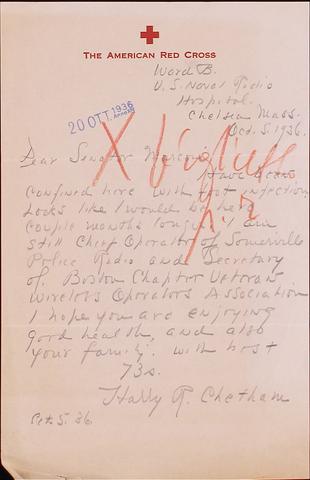 THE AMERICAN RED CROSS
Ward B.
U.S. Naval Radio
Hospital.
Chelsea Mass.
Oct. 5. 1936.
20 OTT 1936
Dear Senator Marconi
Have been
confined here with foot infection
Looks like I would be here
couple months longer. I am
still Chief Operator of Somerville
Police Radio and Secretary
of Boston Chapter Veteran
Wireless Operators Association
I hope you are enjoying
good health, and also
your family. With best
73s.
Harry R. Chetham
Oct. 5. 36